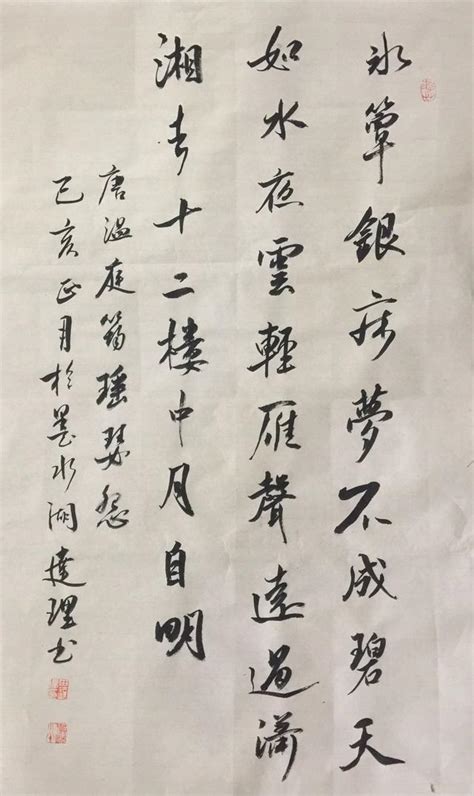 冰簟銀床夢不成碧天
如水夜雲輕雁聲遠過瀟
湘去十二樓中月自明
唐溫庭筠瑤瑟怨
己亥正月於墨水湖達理书